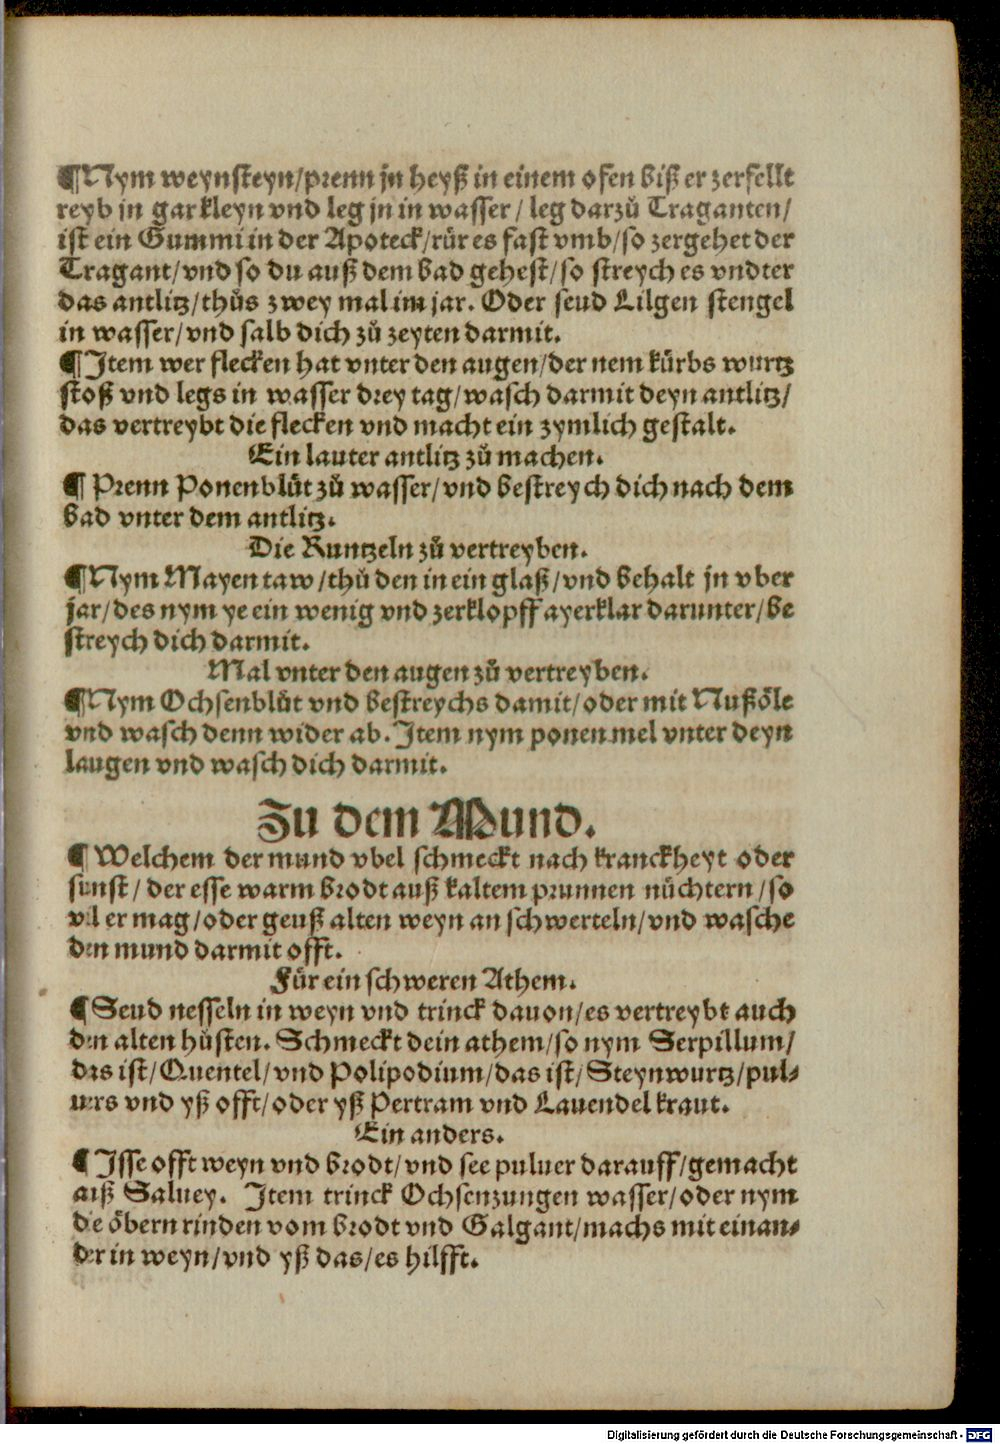 ¶Nym weynsteyn/prenn jn heyß in einem ofen biß er zerfellt
reyb jn gar kleyn vnd leg jn in wasser/ leg darzů Traganten/
ist ein Gummi in der Apoteck/rür es fast vmb/so zergehet der
Tragant/vnd so du auß dem bad gehest/so streych es vndter
das antlitz/thůs zwey mal im jar. Oder seud Lilgen stengel
in wasser/vnd salb dich zů zeyten darmit.
¶Item wer flecken hat vnter den augen/der nem kürbs wurtz
stoß vnd legs in wasser drey tag/wasch darmit deyn antlitz/
das vertreybt die flecken vnd macht ein zymlich gestalt.
Ein lauter antlitz zů machen.
¶ Prenn Ponenblůt zů wasser/vnd bestreych dich nach dem
bad vnter dem antlitz.
Die Runtzeln zů vertreyben.
¶Nym Mayen taw/thů den in ein glaß/vnd behalt jn vber
jar/des nym ye ein wenig vnd zerklopff ayerklar darunter/be
streych dich darmit.
Mal vnter den augen zů vertreyben.
¶Nym Ochsenblůt vnd bestreychs damit/oder mit Nußöle
vnd wasch denn wider ab. Item nym ponen mel vnter deyn
laugen vnd wasch dich darmit.
Zu dem Mund.
¶ Welchem der mund vbel schmeckt nach kranckheyt oder
sunst/ der esse warm brodt auß kaltem prunnen nüchtern/so
vil er mag/oder geuß alten weyn an schwerteln/vnd wasche
den mund darmit offt.
Für ein schweren Athem.
¶Seud nesseln in weyn vnd trinck dauon/es vertreybt auch
den alten hůsten. Schmeckt dein athem/so nym Serpillum/
das ist/Quentel/vnd Polipodium/das ist/Steynwurtz/pul⸗
uers vnd yß offt/oder yß Pertram vnd Lauendel kraut.
Ein anders.
¶ Isse offt weyn vnd brodt/vnd see puluer darauff/gemacht
auß Saluey. Item trinck Ochsenzungen wasser/oder nym
die öbern rinden vom brodt vnd Galgant/machs mit einan⸗
der in weyn/vnd yß das/es hilfft.
Digitalisierung gefördert durch die Deutsche Forschungsgemeinschaft - DFG